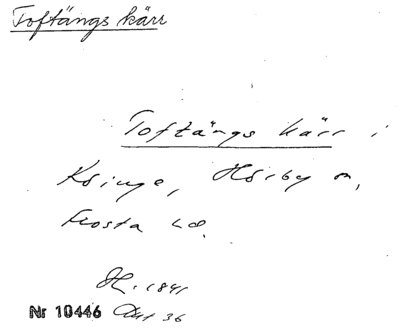 Toftängs kärr
Toftängs kärr i
Ksinge, Hörby sn,
Frosta hd.
H. 1841
Nr 10446 Akt 36